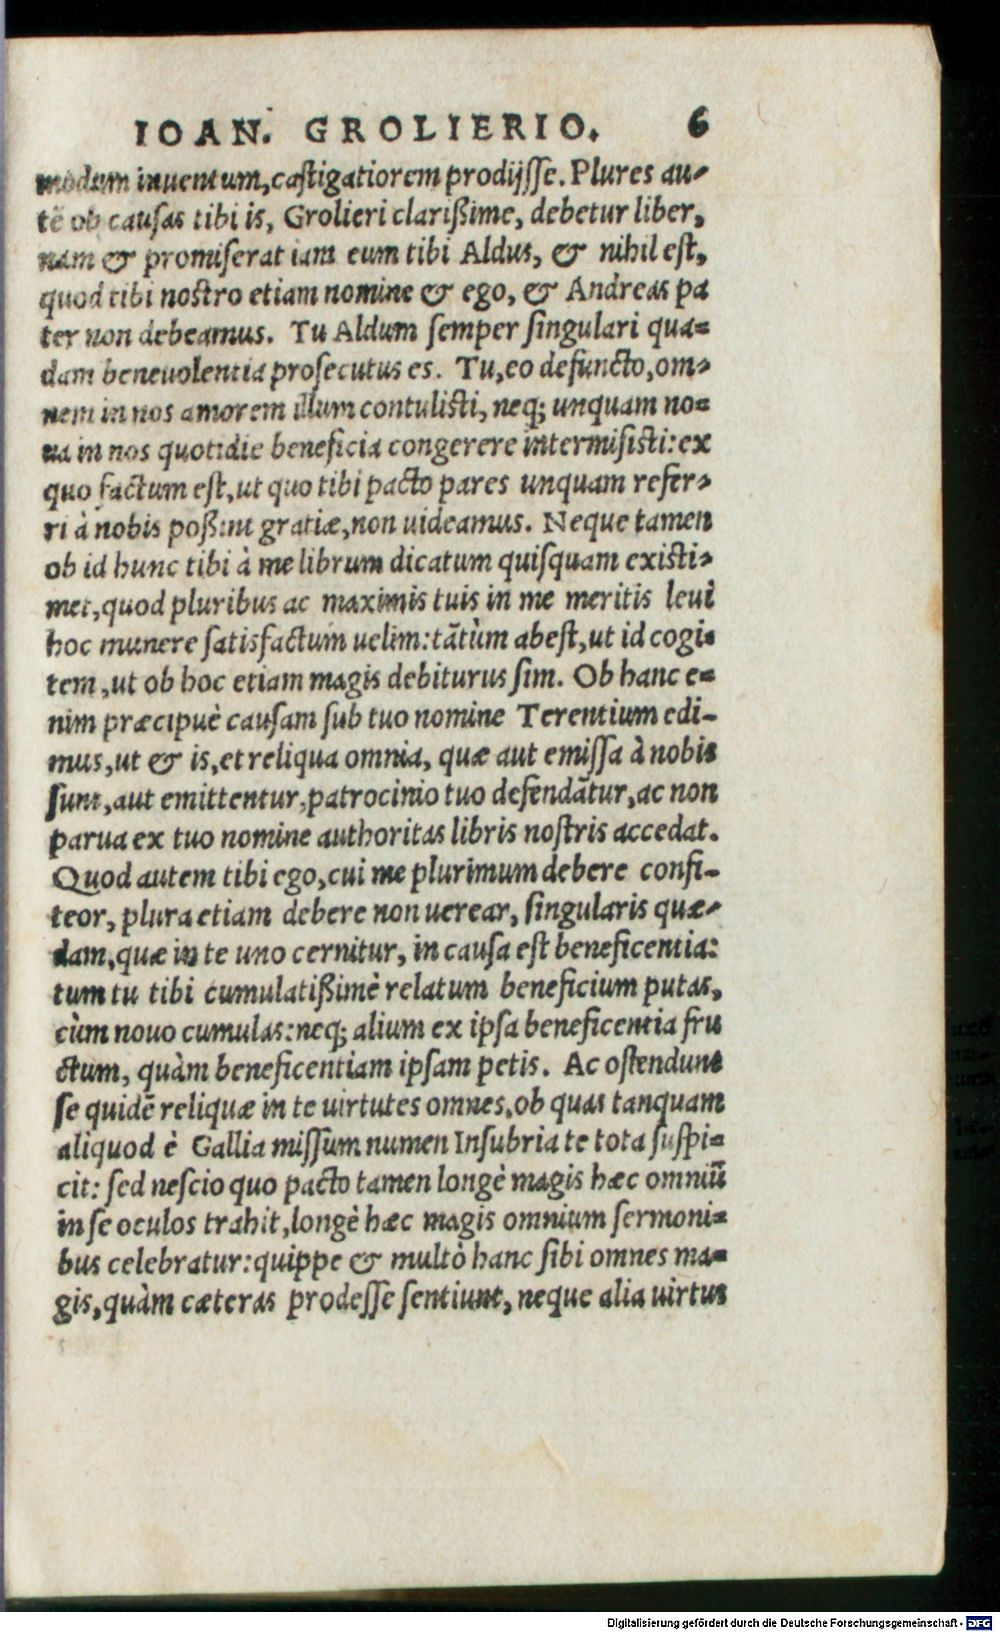 IOAN. GROLIERIO. 6
modum inuentum, castigatiorem prodijsse. Plures au-
tē ob causas tibi is, Grolieri clarißime, debetur liber,
nam & promiserat iam eum tibi Aldus, & nihil est,
quod tibi nostro etiam nomine & ego, & Andreas pa
ter non debeamus. Tu Aldum semper singulari qua-
dam beneuolentia prosecutus es. Tu, eo defuncto, om-
nem in nos amorem illum contulisti, neq; unquam no-
ua in nos quotidie beneficia congerere intermisisti: ex
quo factum est, ut quo tibi pacto pares unquam refer-
ri à nobis poßint gratiæ, non uideamus. Neque tamen
ob id hunc tibi à me librum dicatum quisquam existi-
met, quod pluribus ac maximis tuis in me meritis leui
hoc munere satisfactum uelim: tātùm abest, ut id cogi-
tem, ut ob hoc etiam magis debiturus sim. Ob hanc e-
nim præcipuè causam sub tuo nomine Terentium edi-
mus, ut & is, et reliqua omnia, quæ aut emissa à nobis
sunt, aut emittentur, patrocinio tuo defendātur, ac non
parua ex tuo nomine authoritas libris nostris accedat.
Quod autem tibi ego, cui me plurimum debere confi-
teor, plura etiam debere non uerear, singularis quæ-
dam, quæ in te uno cernitur, in causa est beneficentia:
tum tu tibi cumulatißimè relatum beneficium putas,
cùm nouo cumulas: neq; alium ex ipsa beneficentia fru
ctum, quàm beneficentiam ipsam petis. Ac ostendunt
se quidē reliquæ in te uirtutes omnes, ob quas tanquam
aliquod è Gallia missum numen Insubria te tota suspi-
cit: sed nescio quo pacto tamen longè magis hæc omniū
in se oculos trahit, longè hæc magis omnium sermoni-
bus celebratur: quippe & multò hanc sibi omnes ma-
gis, quàm cæteras prodesse sentiunt, neque alia uirtus
Digitalisierung gefördert durch die Deutsche Forschungsgemeinschaft - DFG